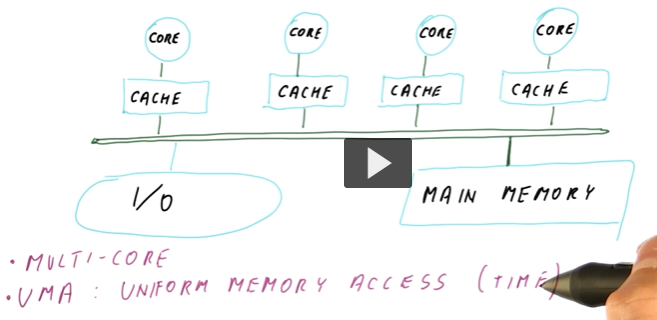 CORE CORE CORE CORE
CACHE CACHE CACHE CACHE
I/O MAIN MEMORY
• MULTI-CORE
• UMA : UNIFORM MEMORY ACCESS (TIME)